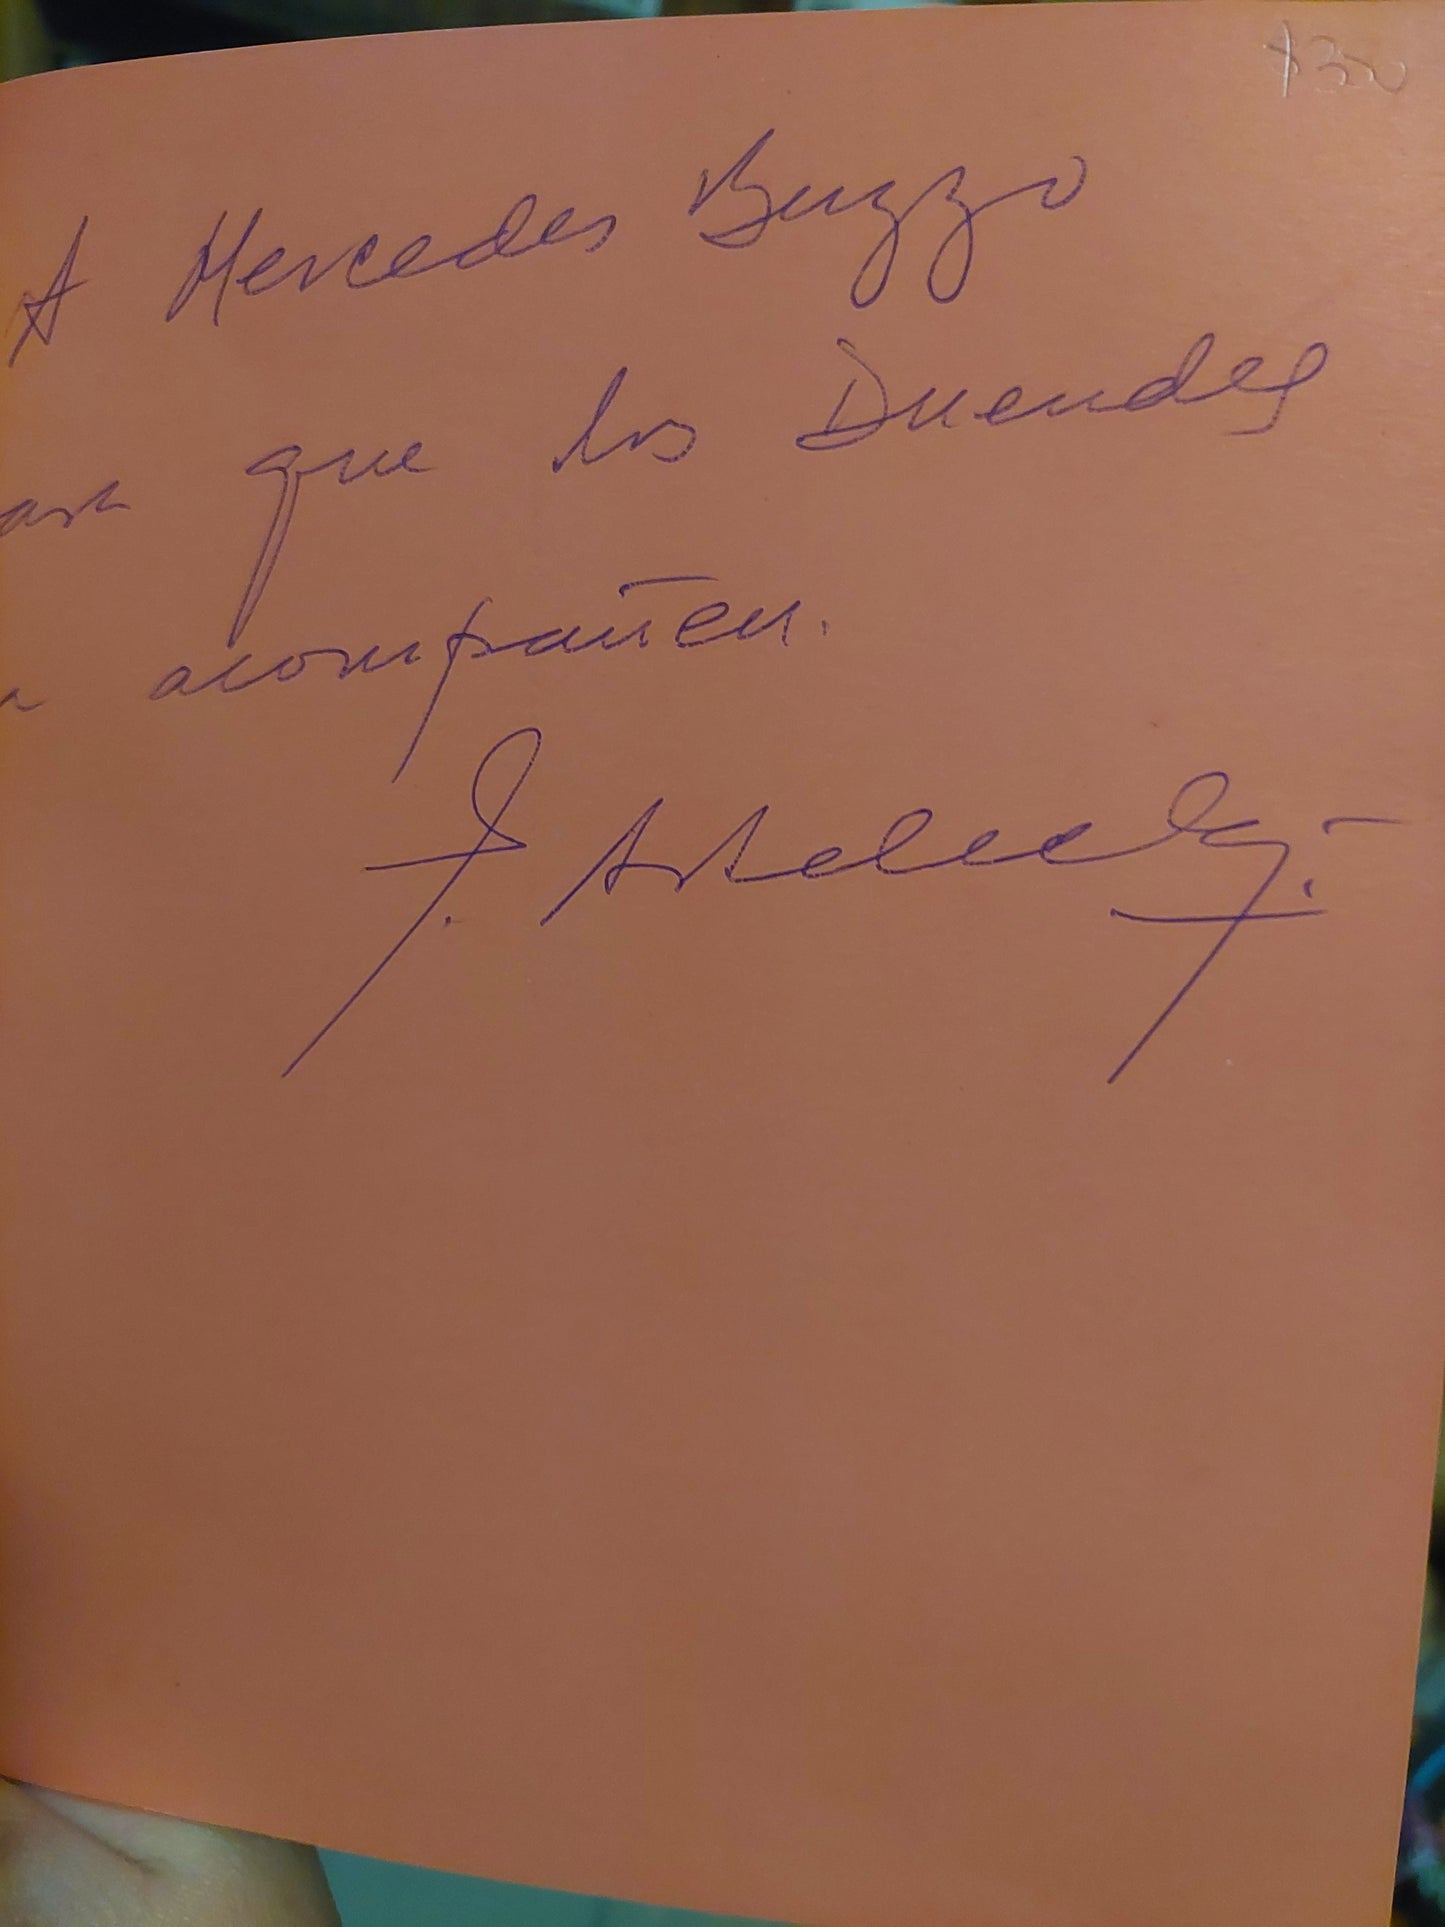 $300
A Mercedes Buzzo
que los Duendes
acompañen.